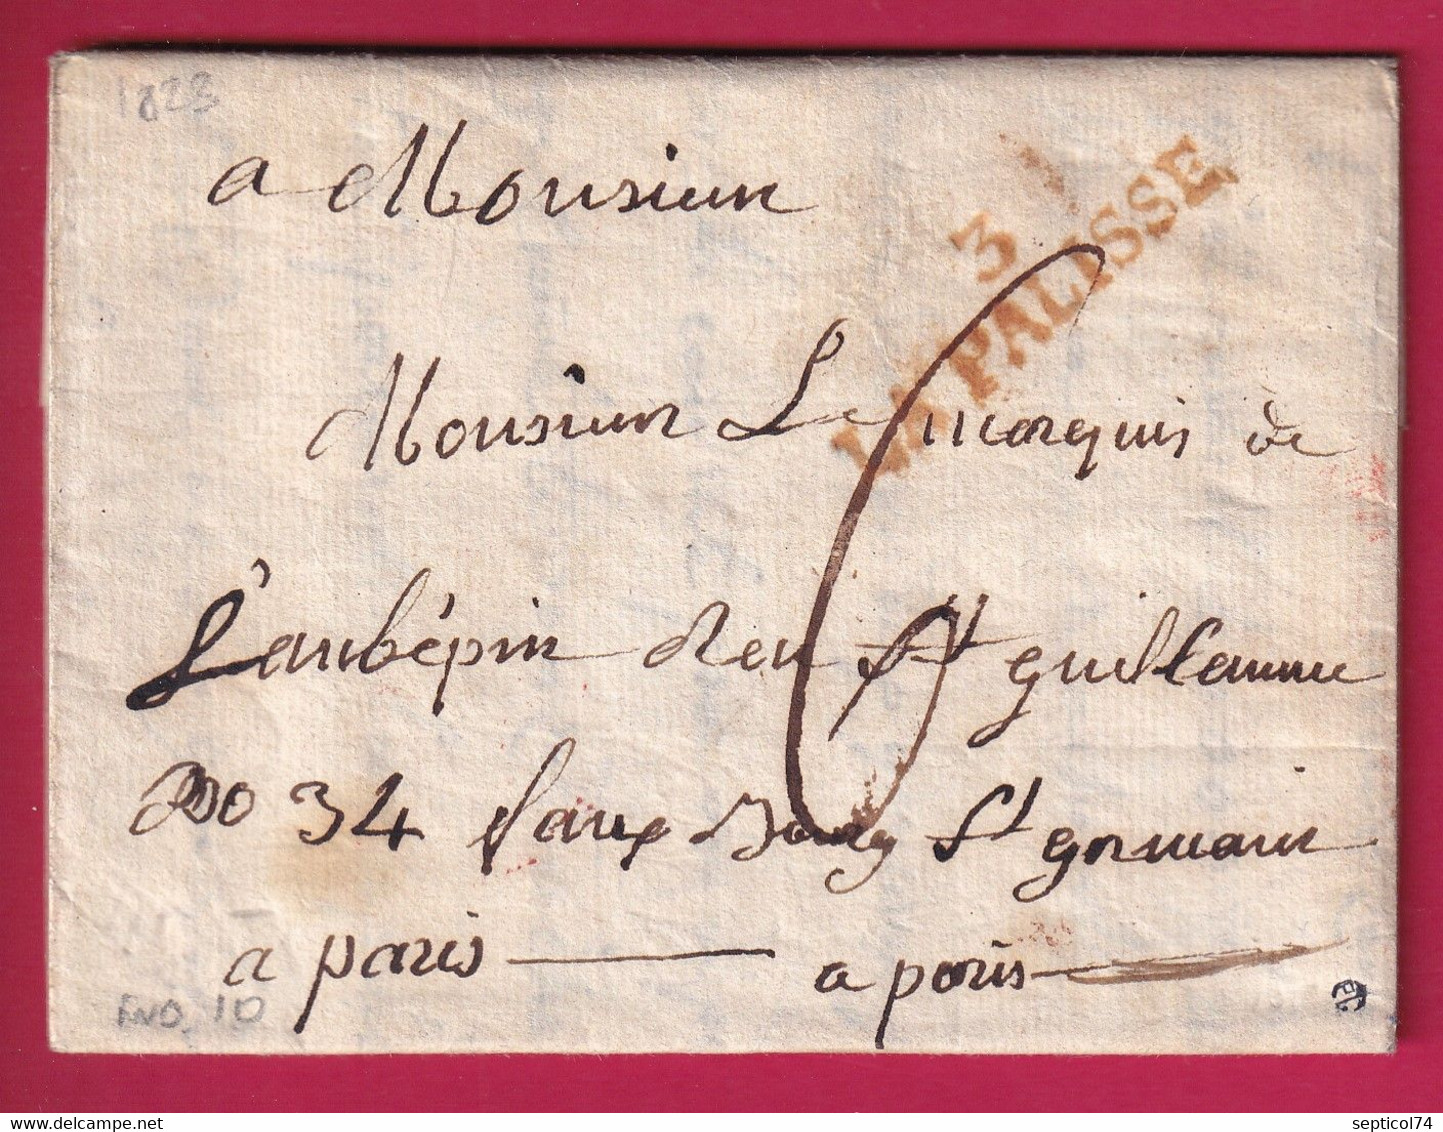 1823
a Monsieur
3
LA PALISSE
6
Monsieur Le marquis de
L'aubépin rue St guillaume
No 34 faux bourg St germain
a paris — a paris
IND 10
delcampe.net
septicol74